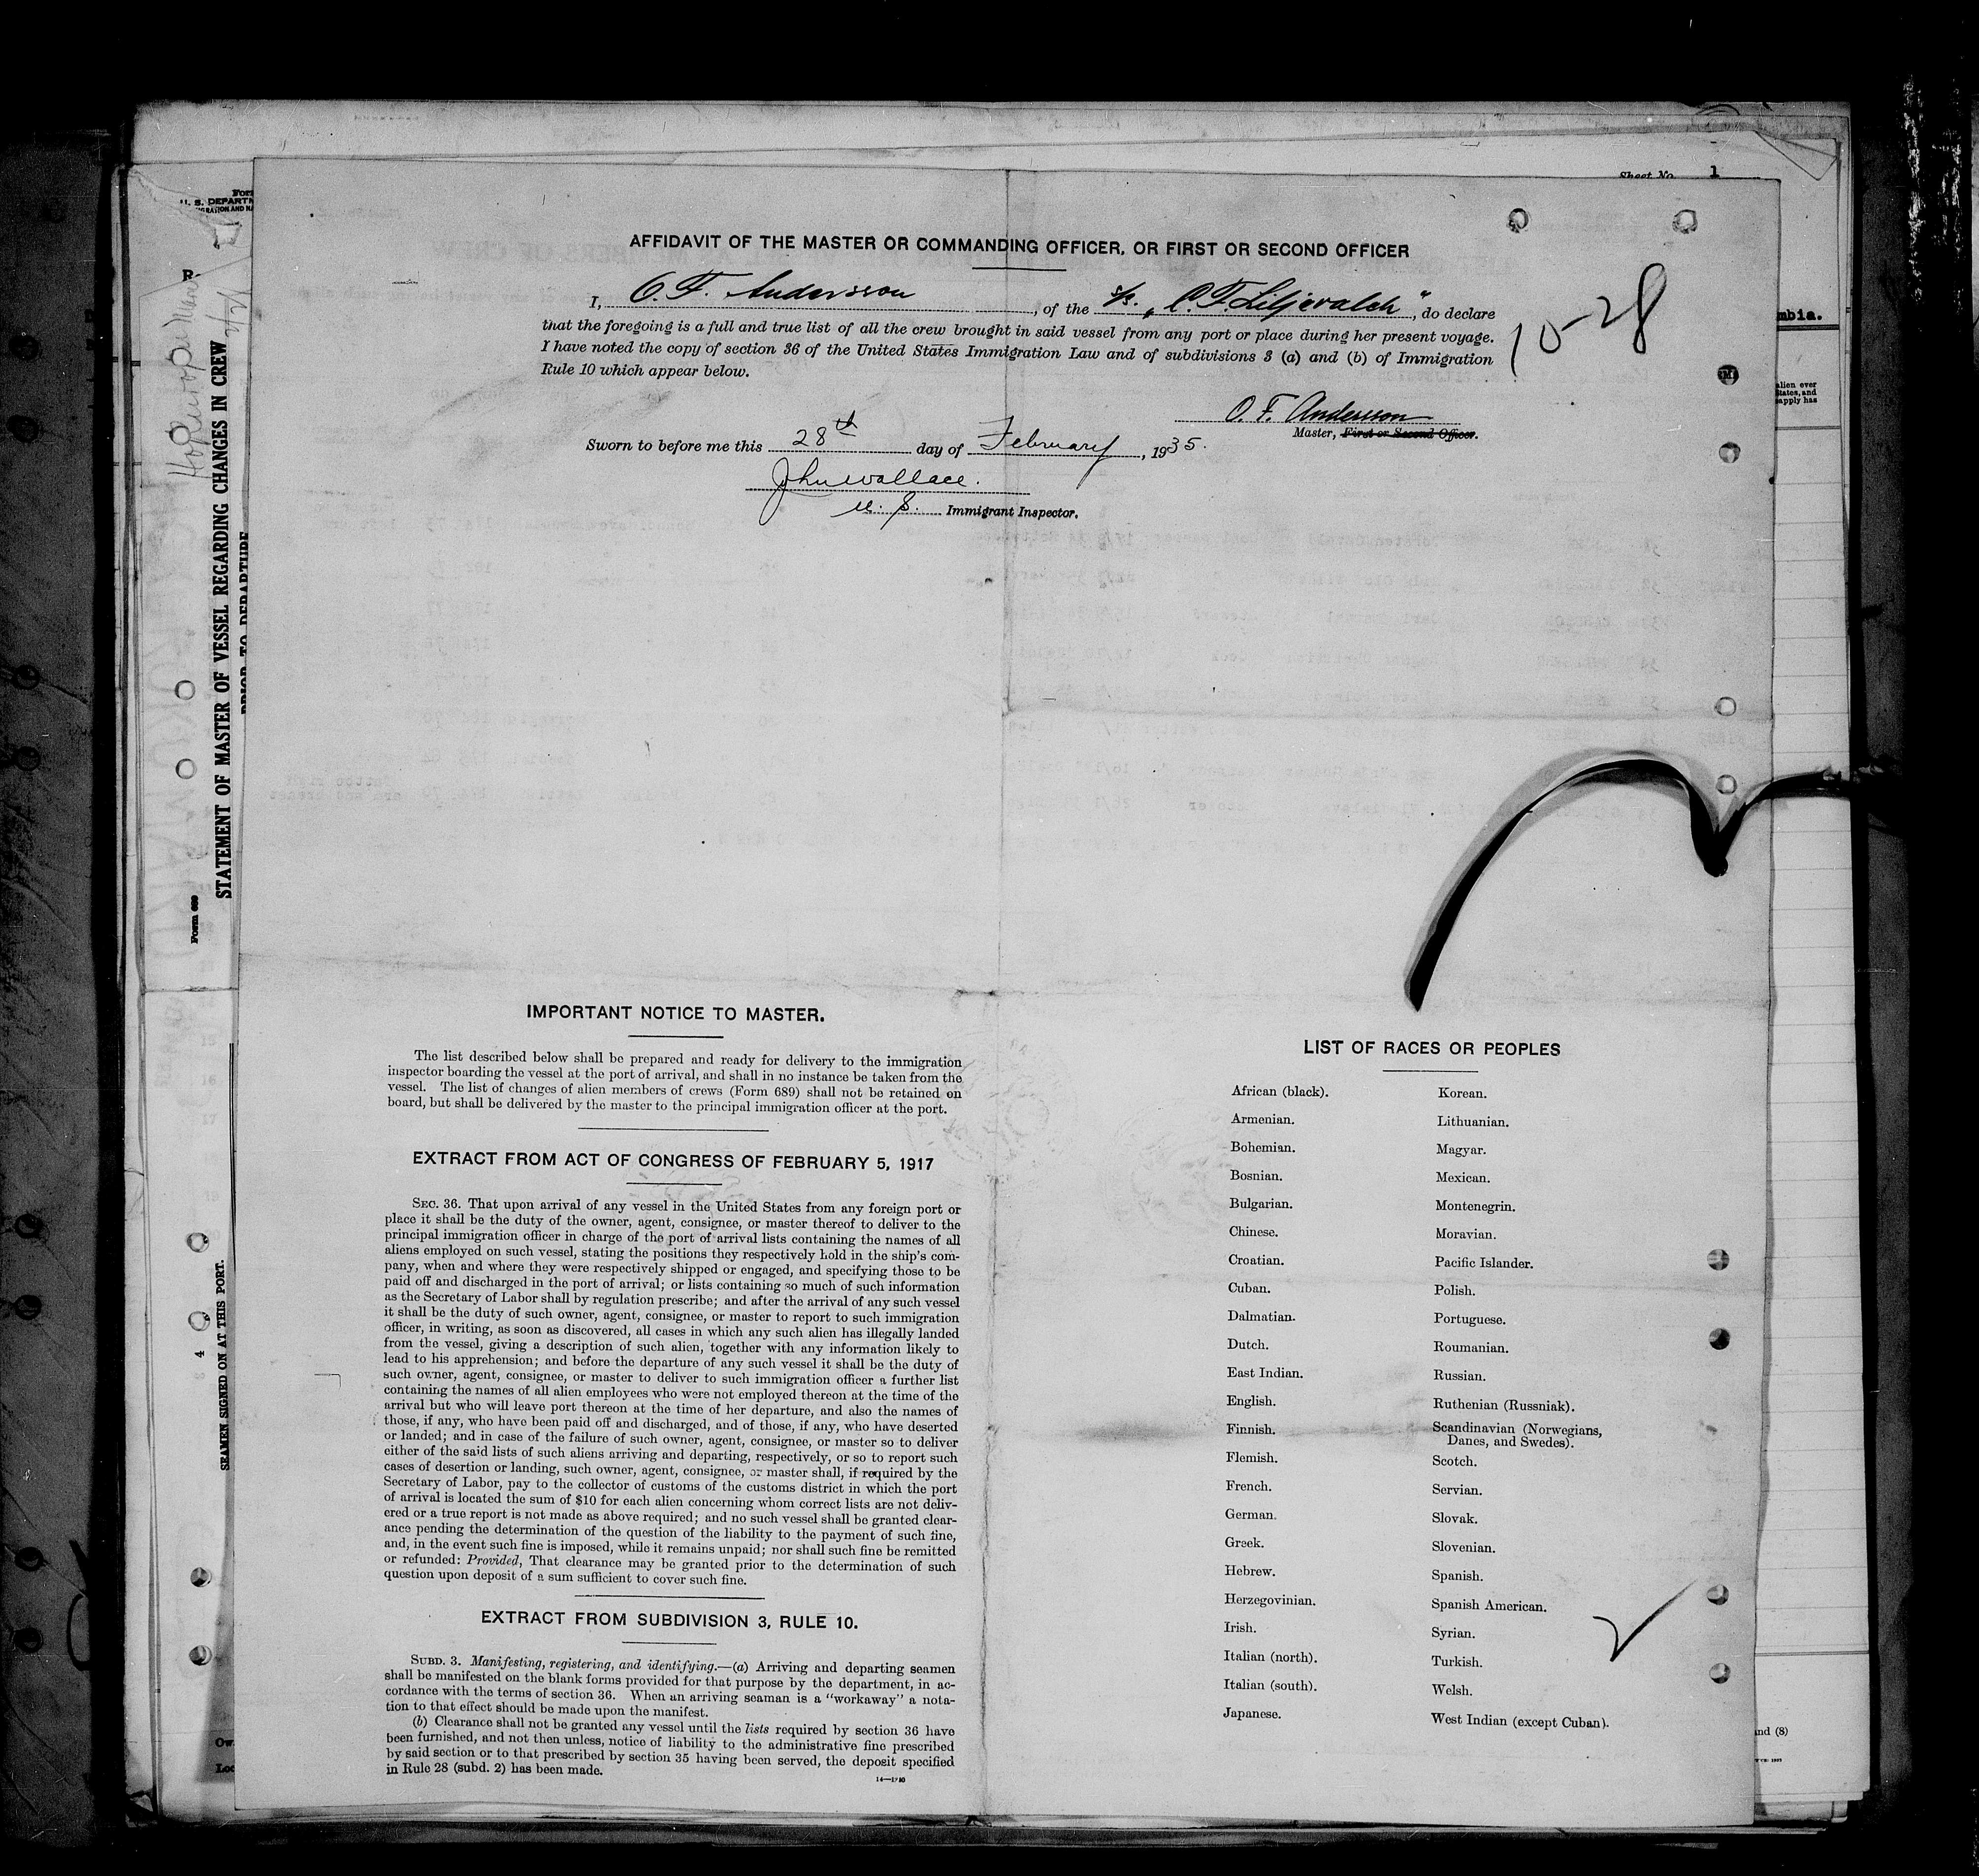 Sheet No. 1
Form
U. S. DEPARTM
STATEMENT OF MASTER OF VESSEL REGARDING CHANGES IN CREW
PRIOR TO DEPARTURE
Form 689
SEAMEN SIGNED ON AT THIS PORT.
4
mbia.
alien ever
States, and
apply has
nd (8)
AFFIDAVIT OF THE MASTER OR COMMANDING OFFICER, OR FIRST OR SECOND OFFICER
I, O. F. Andersson, of the s/s. „C. F. Liljevalch", do declare
that the foregoing is a full and true list of all the crew brought in said vessel from any port or place during her present voyage.
I have noted the copy of section 36 of the United States Immigration Law and of subdivisions 3 (a) and (b) of Immigration
Rule 10 which appear below.
10-28
O. F. Andersson
Master, First or Second Officer.
Sworn to before me this 28th day of February, 1935.
John Wallace.
U. S. Immigrant Inspector.
IMPORTANT NOTICE TO MASTER.
The list described below shall be prepared and ready for delivery to the immigration
inspector boarding the vessel at the port of arrival, and shall in no instance be taken from the
vessel. The list of changes of alien members of crews (Form 689) shall not be retained on
board, but shall be delivered by the master to the principal immigration officer at the port.
EXTRACT FROM ACT OF CONGRESS OF FEBRUARY 5, 1917
SEC. 36. That upon arrival of any vessel in the United States from any foreign port or
place it shall be the duty of the owner, agent, consignee, or master thereof to deliver to the
principal immigration officer in charge of the port of arrival lists containing the names of all
aliens employed on such vessel, stating the positions they respectively hold in the ship's com-
pany, when and where they were respectively shipped or engaged, and specifying those to be
paid off and discharged in the port of arrival; or lists containing so much of such information
as the Secretary of Labor shall by regulation prescribe; and after the arrival of any such vessel
it shall be the duty of such owner, agent, consignee, or master to report to such immigration
officer, in writing, as soon as discovered, all cases in which any such alien has illegally landed
from the vessel, giving a description of such alien, together with any information likely to
lead to his apprehension; and before the departure of any such vessel it shall be the duty of
such owner, agent, consignee, or master to deliver to such immigration officer a further list
containing the names of all alien employees who were not employed thereon at the time of the
arrival but who will leave port thereon at the time of her departure, and also the names of
those, if any, who have been paid off and discharged, and of those, if any, who have deserted
or landed; and in case of the failure of such owner, agent, consignee, or master so to deliver
either of the said lists of such aliens arriving and departing, respectively, or so to report such
cases of desertion or landing, such owner, agent, consignee, or master shall, if required by the
Secretary of Labor, pay to the collector of customs of the customs district in which the port
of arrival is located the sum of $10 for each alien concerning whom correct lists are not deliv-
ered or a true report is not made as above required; and no such vessel shall be granted clear-
ance pending the determination of the question of the liability to the payment of such fine,
and, in the event such fine is imposed, while it remains unpaid; nor shall such fine be remitted
or refunded: Provided, That clearance may be granted prior to the determination of such
question upon deposit of a sum sufficient to cover such fine.
EXTRACT FROM SUBDIVISION 3, RULE 10.
SUBD. 3. Manifesting, registering, and identifying.—(a) Arriving and departing seamen
shall be manifested on the blank forms provided for that purpose by the department, in ac-
cordance with the terms of section 36. When an arriving seaman is a "workaway" a nota-
tion to that effect should be made upon the manifest.
(b) Clearance shall not be granted any vessel until the lists required by section 36 have
been furnished, and not then unless, notice of liability to the administrative fine prescribed
by said section or to that prescribed by section 35 having been served, the deposit specified
in Rule 28 (subd. 2) has been made.
LIST OF RACES OR PEOPLES
African (black).
Armenian.
Bohemian.
Bosnian.
Bulgarian.
Chinese.
Croatian.
Cuban.
Dalmatian.
Dutch.
East Indian.
English.
Finnish.
Flemish.
French.
German.
Greek.
Hebrew.
Herzegovinian.
Irish.
Italian (north).
Italian (south).
Japanese.
Korean.
Lithuanian.
Magyar.
Mexican.
Montenegrin.
Moravian.
Pacific Islander.
Polish.
Portuguese.
Roumanian.
Russian.
Ruthenian (Russniak).
Scandinavian (Norwegians,
Danes, and Swedes).
Scotch.
Servian.
Slovak.
Slovenian.
Spanish.
Spanish American.
Syrian.
Turkish.
Welsh.
West Indian (except Cuban).